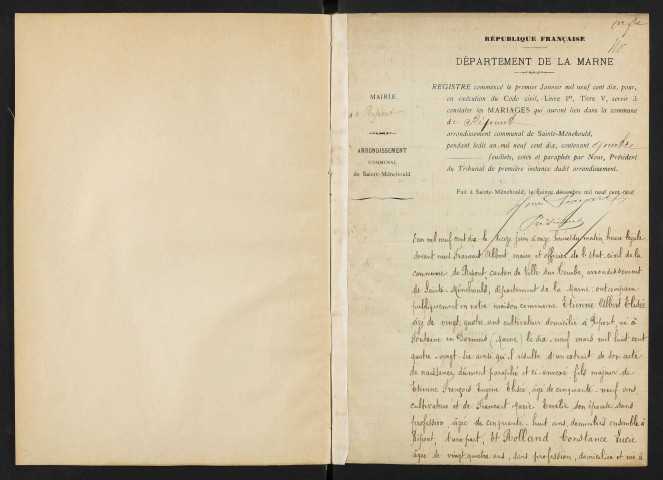 RÉPUBLIQUE FRANÇAISE
DÉPARTEMENT DE LA MARNE
MAIRIE
de Ripont
ARRONDISSEMENT
COMMUNAL
de Sainte-Ménehould
REGISTRE commencé le premier Janvier mil neuf cent dix, pour
en exécution du Code civil, Livre Ier, Titre V, servir à
constater les MARIAGES qui auront lieu dans la commune
de Ripont
arrondissement communal de Sainte-Ménehould,
pendant ledit an mil neuf cent dix, contenant
feuillets, cotés et paraphés par Nous, Président
du Tribunal de première instance dudit arrondissement.
Fait à Sainte-Ménehould, le quinze décembre mil neuf cent neuf.
L'an mil neuf cent dix le onze heures du matin, heure légale
devant nous Francart Albert, maire et officier de l'état-civil de la
commune de Ripont, canton de Ville sur Tourbe, arrondissement
de Sainte-Ménehould, département de la Marne: ont comparu
publiquement en notre maison commune Etienne Albert Elisée
âgé de vingt quatre ans cultivateur domicilié à Ripont, né à
Fontaine en Dormois (Marne) le dix-neuf mars mil huit cent
quatre-vingt-six ainsi qu'il résulte d'un extrait de son acte
de naissance, dûment paraphé et ci-annexé fils majeur de
Etienne François Eugène Elisée, âgé de cinquante-neuf ans,
cultivateur et de Francart Marie Emélie son épouse sans
profession, âgée de cinquante-huit ans, domiciliés ensemble à
Ripont, d'une part, Et Rolland Constance Lucie
âgée de vingt quatre ans, sans profession, domiciliée et née à